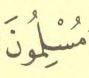 مُسْلِمُونَ